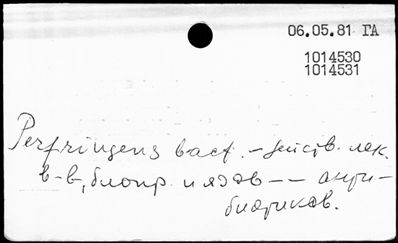 06.05.81 ГА
1014530
1014531
Perfringens bact. – действ. лек.
в-в, биопр. и ядов –– анти-
биотиков.